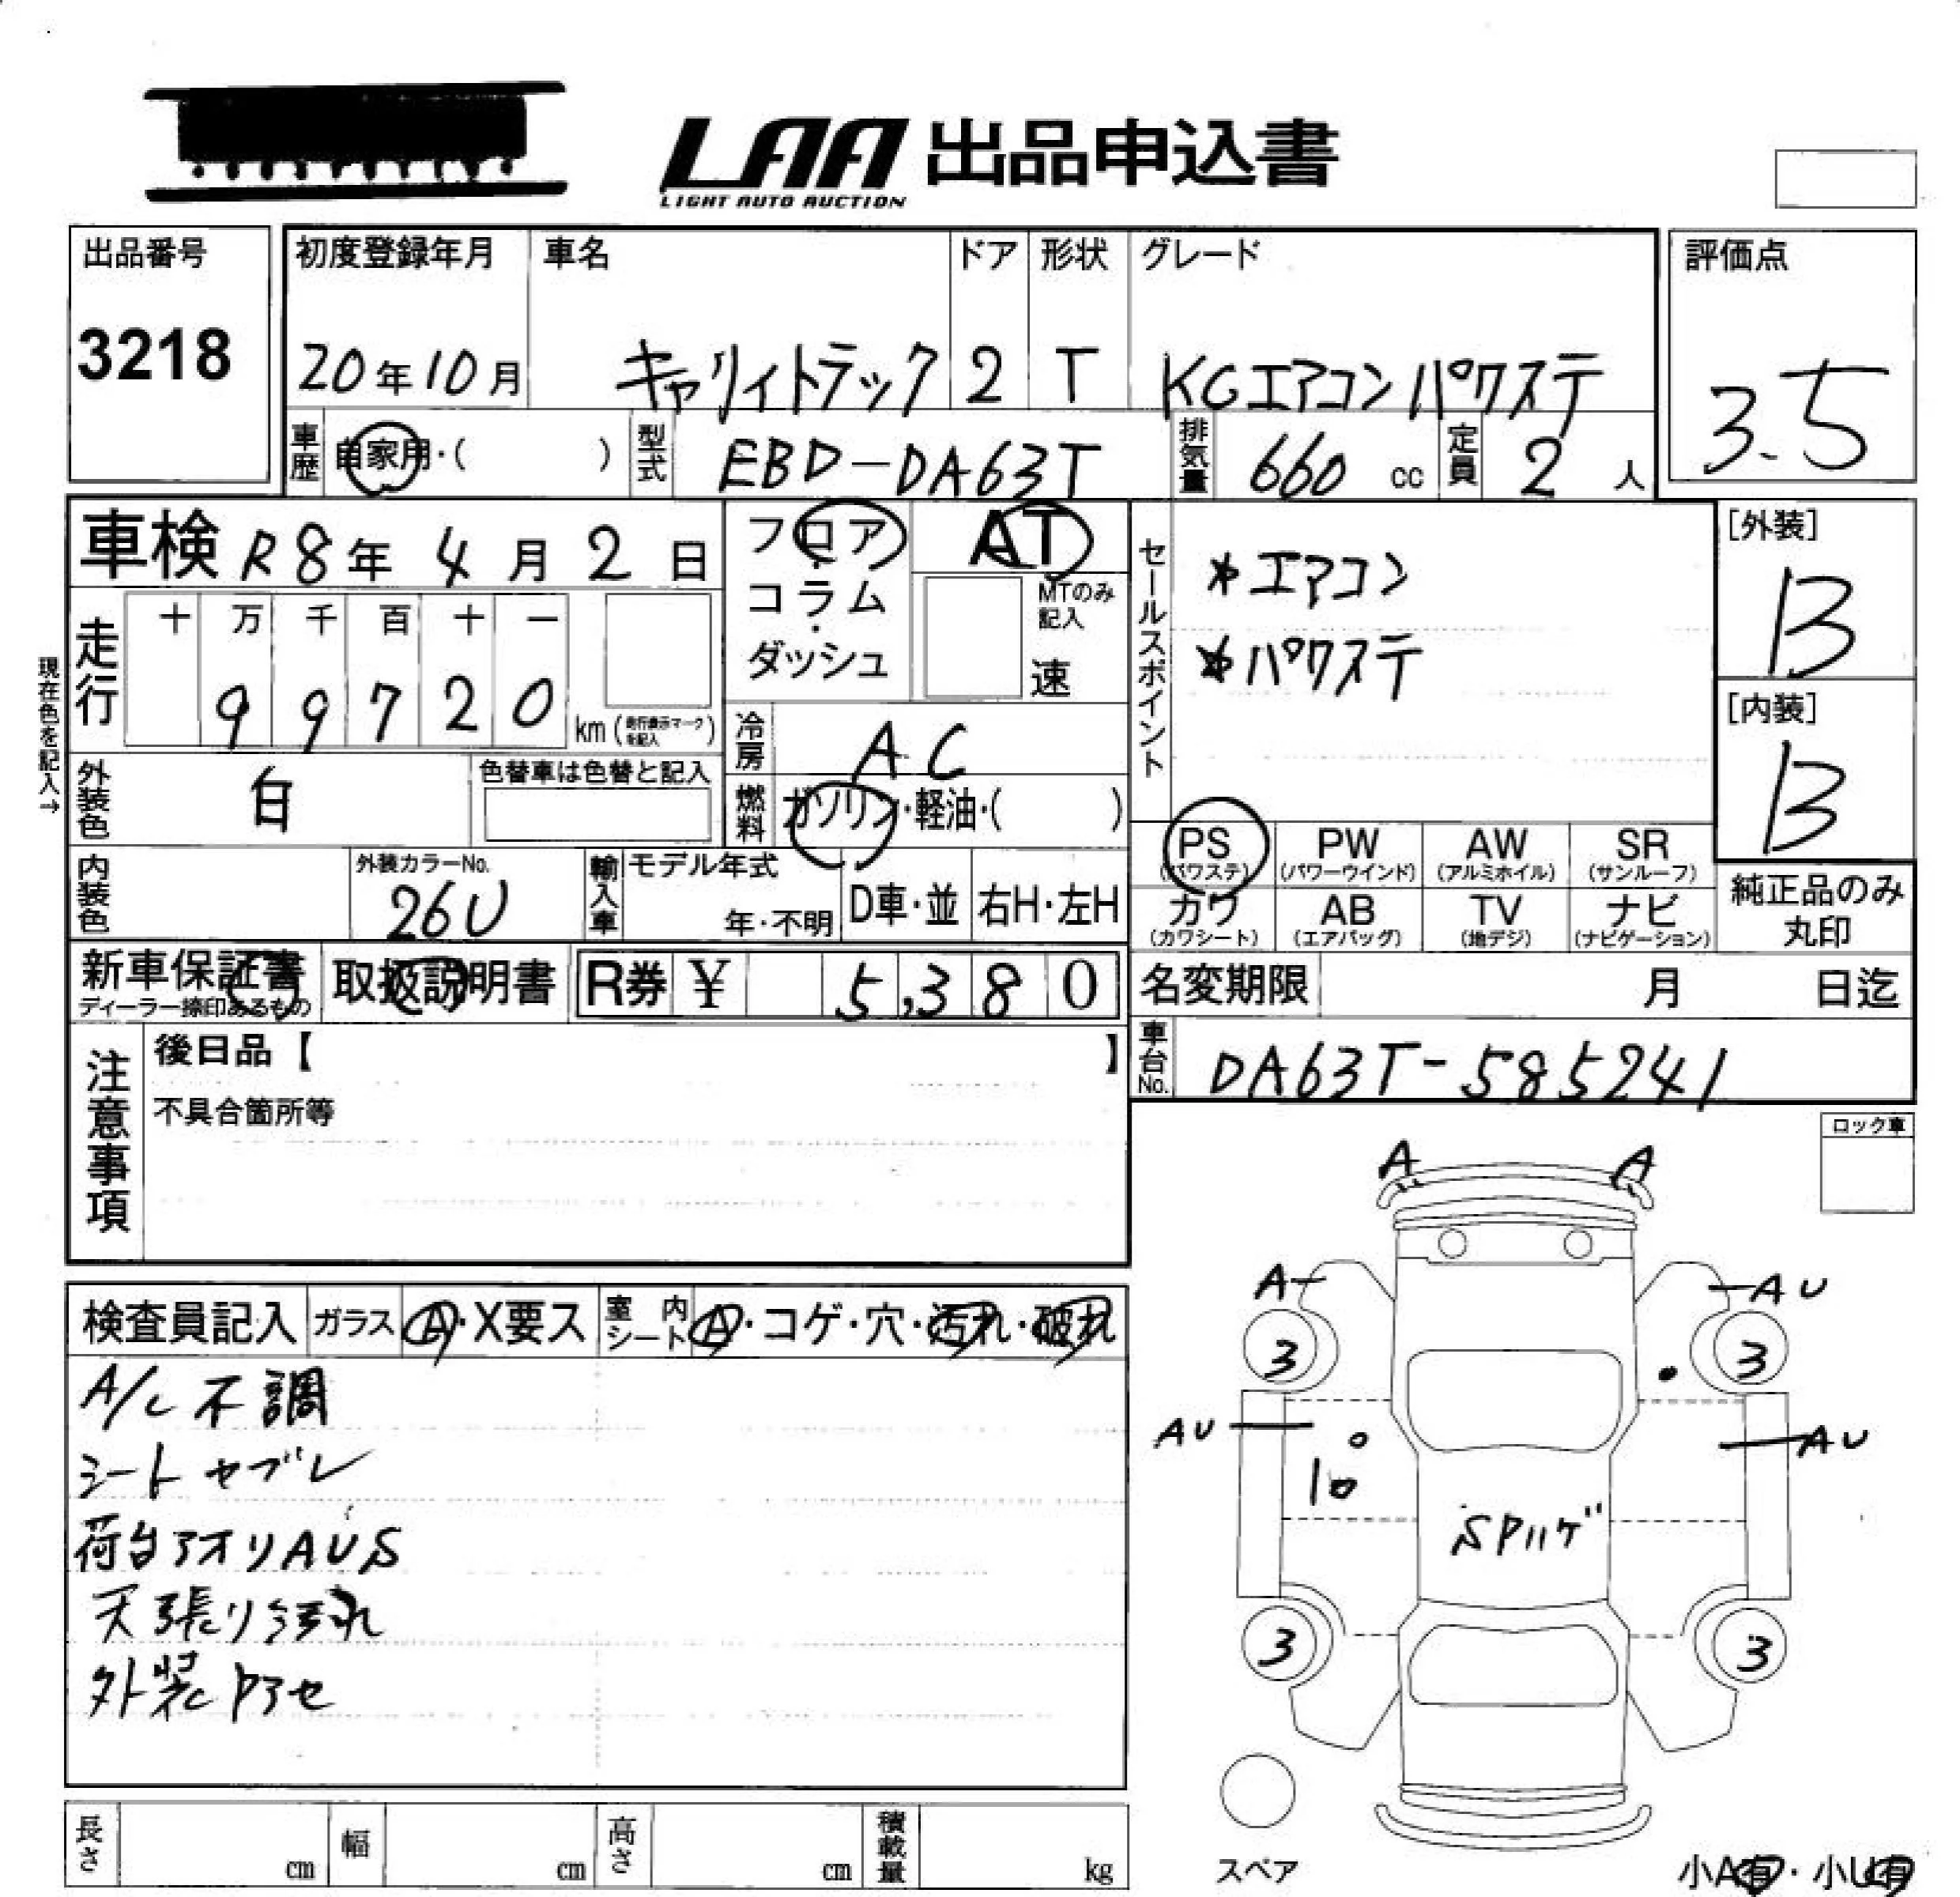 LAA 出品申込書
LIGHT AUTO AUCTION
出品番号
3218
初度登録年月
20年10月
車名
キャリイトラック
ドア
2
形状
T
グレード
KGエアコンパワステ
評価点
3.5
車歴
自家用・( )
型式
EBD-DA63T
排気量
660 cc
定員
2 人
車検 R8年 4月 2日
フロア・コラム・ダッシュ
AT
MTのみ記入
速
セールスポイント
*エアコン
*パワステ
[外装]
B
[内装]
B
現在色を記入→
走行
十 万 千 百 十 一
9 9 7 2 0
km (走行表示マークを記入)
冷房
AC
外装色
白
色替車は色替と記入
燃料
ガソリン・軽油・( )
PS (パワステ)
PW (パワーウインド)
AW (アルミホイル)
SR (サンルーフ)
カワ (カワシート)
AB (エアバッグ)
TV (地デジ)
ナビ (ナビゲーション)
純正品のみ丸印
内装色
外装カラーNo.
26U
輸入車
モデル年式
年・不明
D車・並
右H・左H
新車保証書
ディーラー捺印あるもの
取扱説明書
R券 ¥ 5,380
名変期限 月 日迄
注意事項
後日品【 】
不具合箇所等
車台No.
DA63T-585241
ロック車
検査員記入
ガラス
A・X要ス
室内シート
A・コゲ・穴・汚れ・破れ
A/C 不調
シートヤブレ
荷台アオリAUS
天張り汚れ
外装
A A
A AU
3 3
AU AU
SPハゲ
3 3
スペア
小A有・小U有
長さ cm
幅 cm
高さ cm
積載量 kg